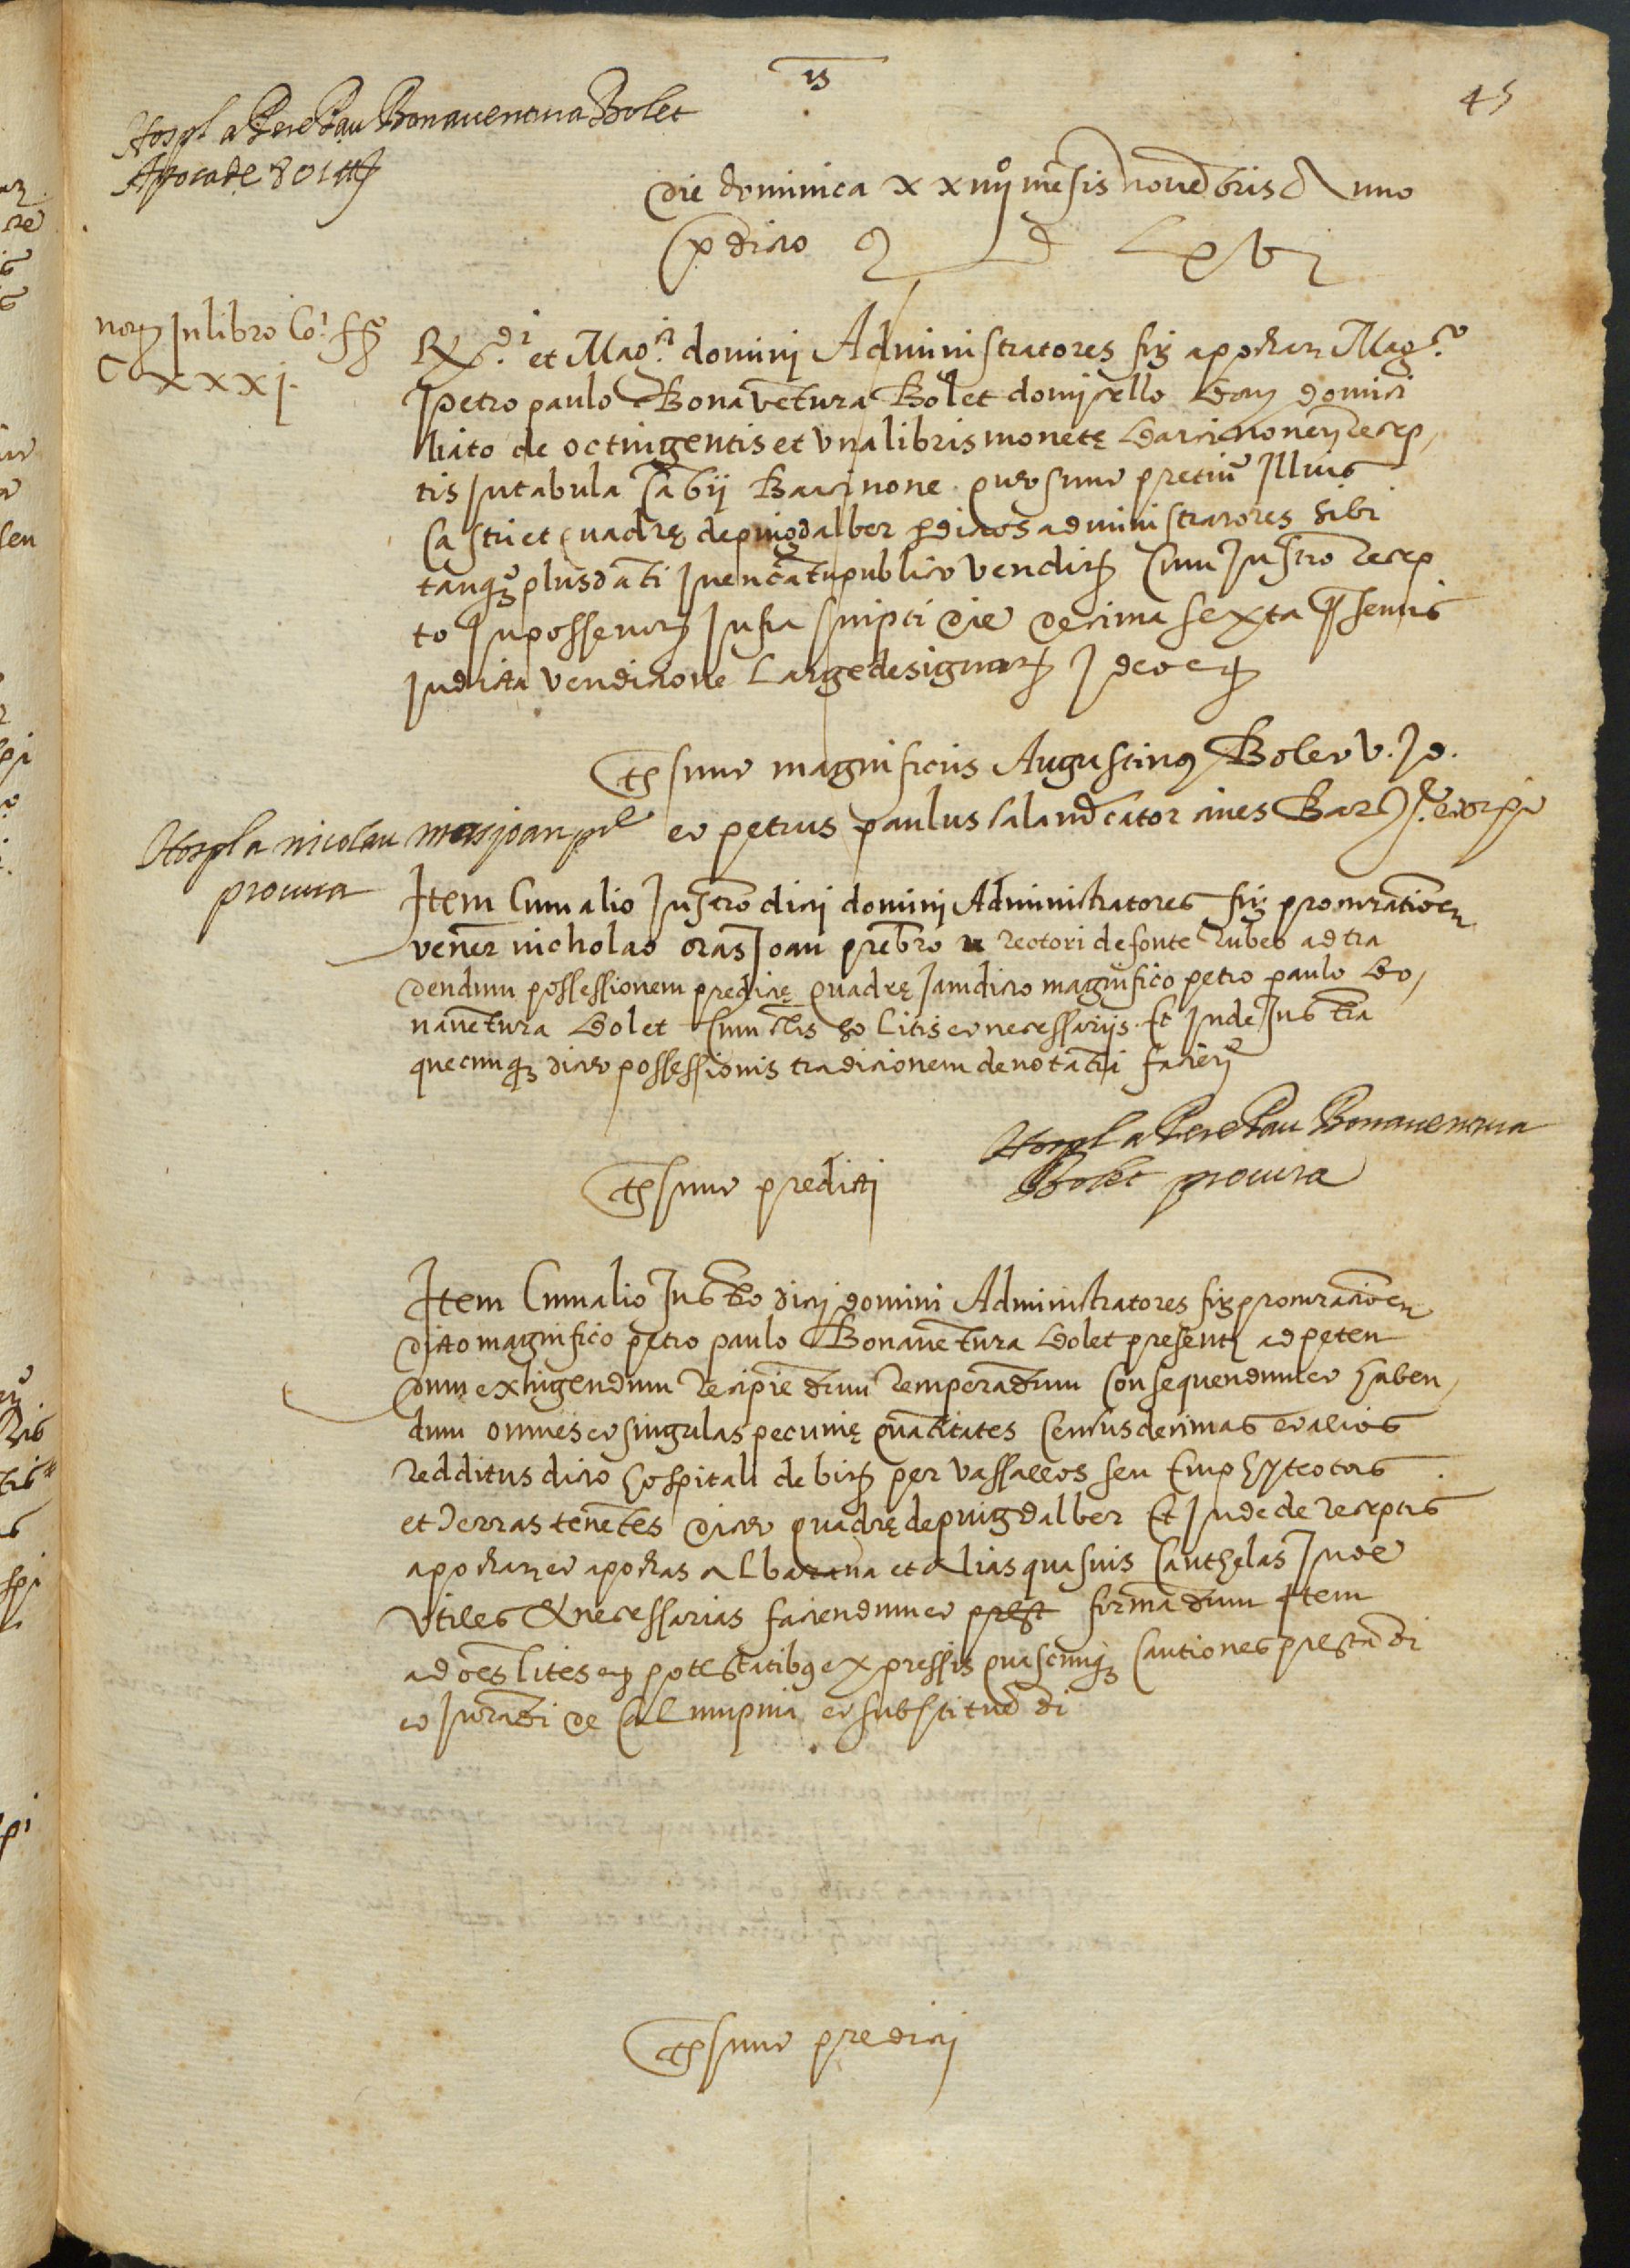 45
Hospl a Pere Pau Bonauentura Bolet
Apoca de 801 ℔
Die dominica xxiiijº mēsis nouēbris Anno
p̄dicto M D Lxvi
not in libro Coⁱ ffº
Cxxxxi.
Rᵈⁱ et Magᶜⁱ dominj Administratores fir apocham Magᶜᵒ
petro paulo Bonavētura Bolet domicello Bar domici
liato de octingentis et vna libris monetę barcinonen recep,
tis in tabula cābij Barcinone que sunt pretiū illius
castri et quadrę de puigdalber p dictos administratores sibi
tanqȝ plus dāti in encātu publico vendit cum instro recep
to in posse not infrascripti die decima sexta p̄sentis
in dicta vendicione large designat ideo etc
Tˢ sunt magnificus Augustinus Bolet V. J d.
et petrus paulus sala mercator ciues Bar
Hospl a nicolau masjoan pre
procura
Item cum alio instro dicti dominj Administratores fir procurationem
vener nicholao mas Joan prebro rectori de fonte rubeo ad tra
dendum possessionem predictę quadrę iamdicto magnifico petro paulo bo,
nauētura bolet cum clis solitis et necessarijs. Et inde instra
quecunqȝ dicte possessionis tradicionem denotātia fieri
Tˢ sunt predicti
Hospl a Pere Pau Bonauentura
Bolet procura
Item cum alio instro dicti domini Administratores fir procurationem
dicto magnifico petro paulo Bonauētura bolet presenti ad peten
dum exhigendum recipiēdum recuperādum consequendum et haben,
dum omnes et singulas pecunię quātitates census decimas et alios
redditus dicto hospitali debit per vassallos seu emphyteotas
et terras tenētes dicte quadrę de puigdalber Et inde de receptis
apocham et apochas albarana et alias quasuis cauthelas inde
vtiles & necessarias faciendum et prest firmādum Item
ad oēs lites cum potestatibus expressis quascunqȝ cautiones prestādi
et iurādi de calumpnia et substituēdi
Tˢ sunt predicti